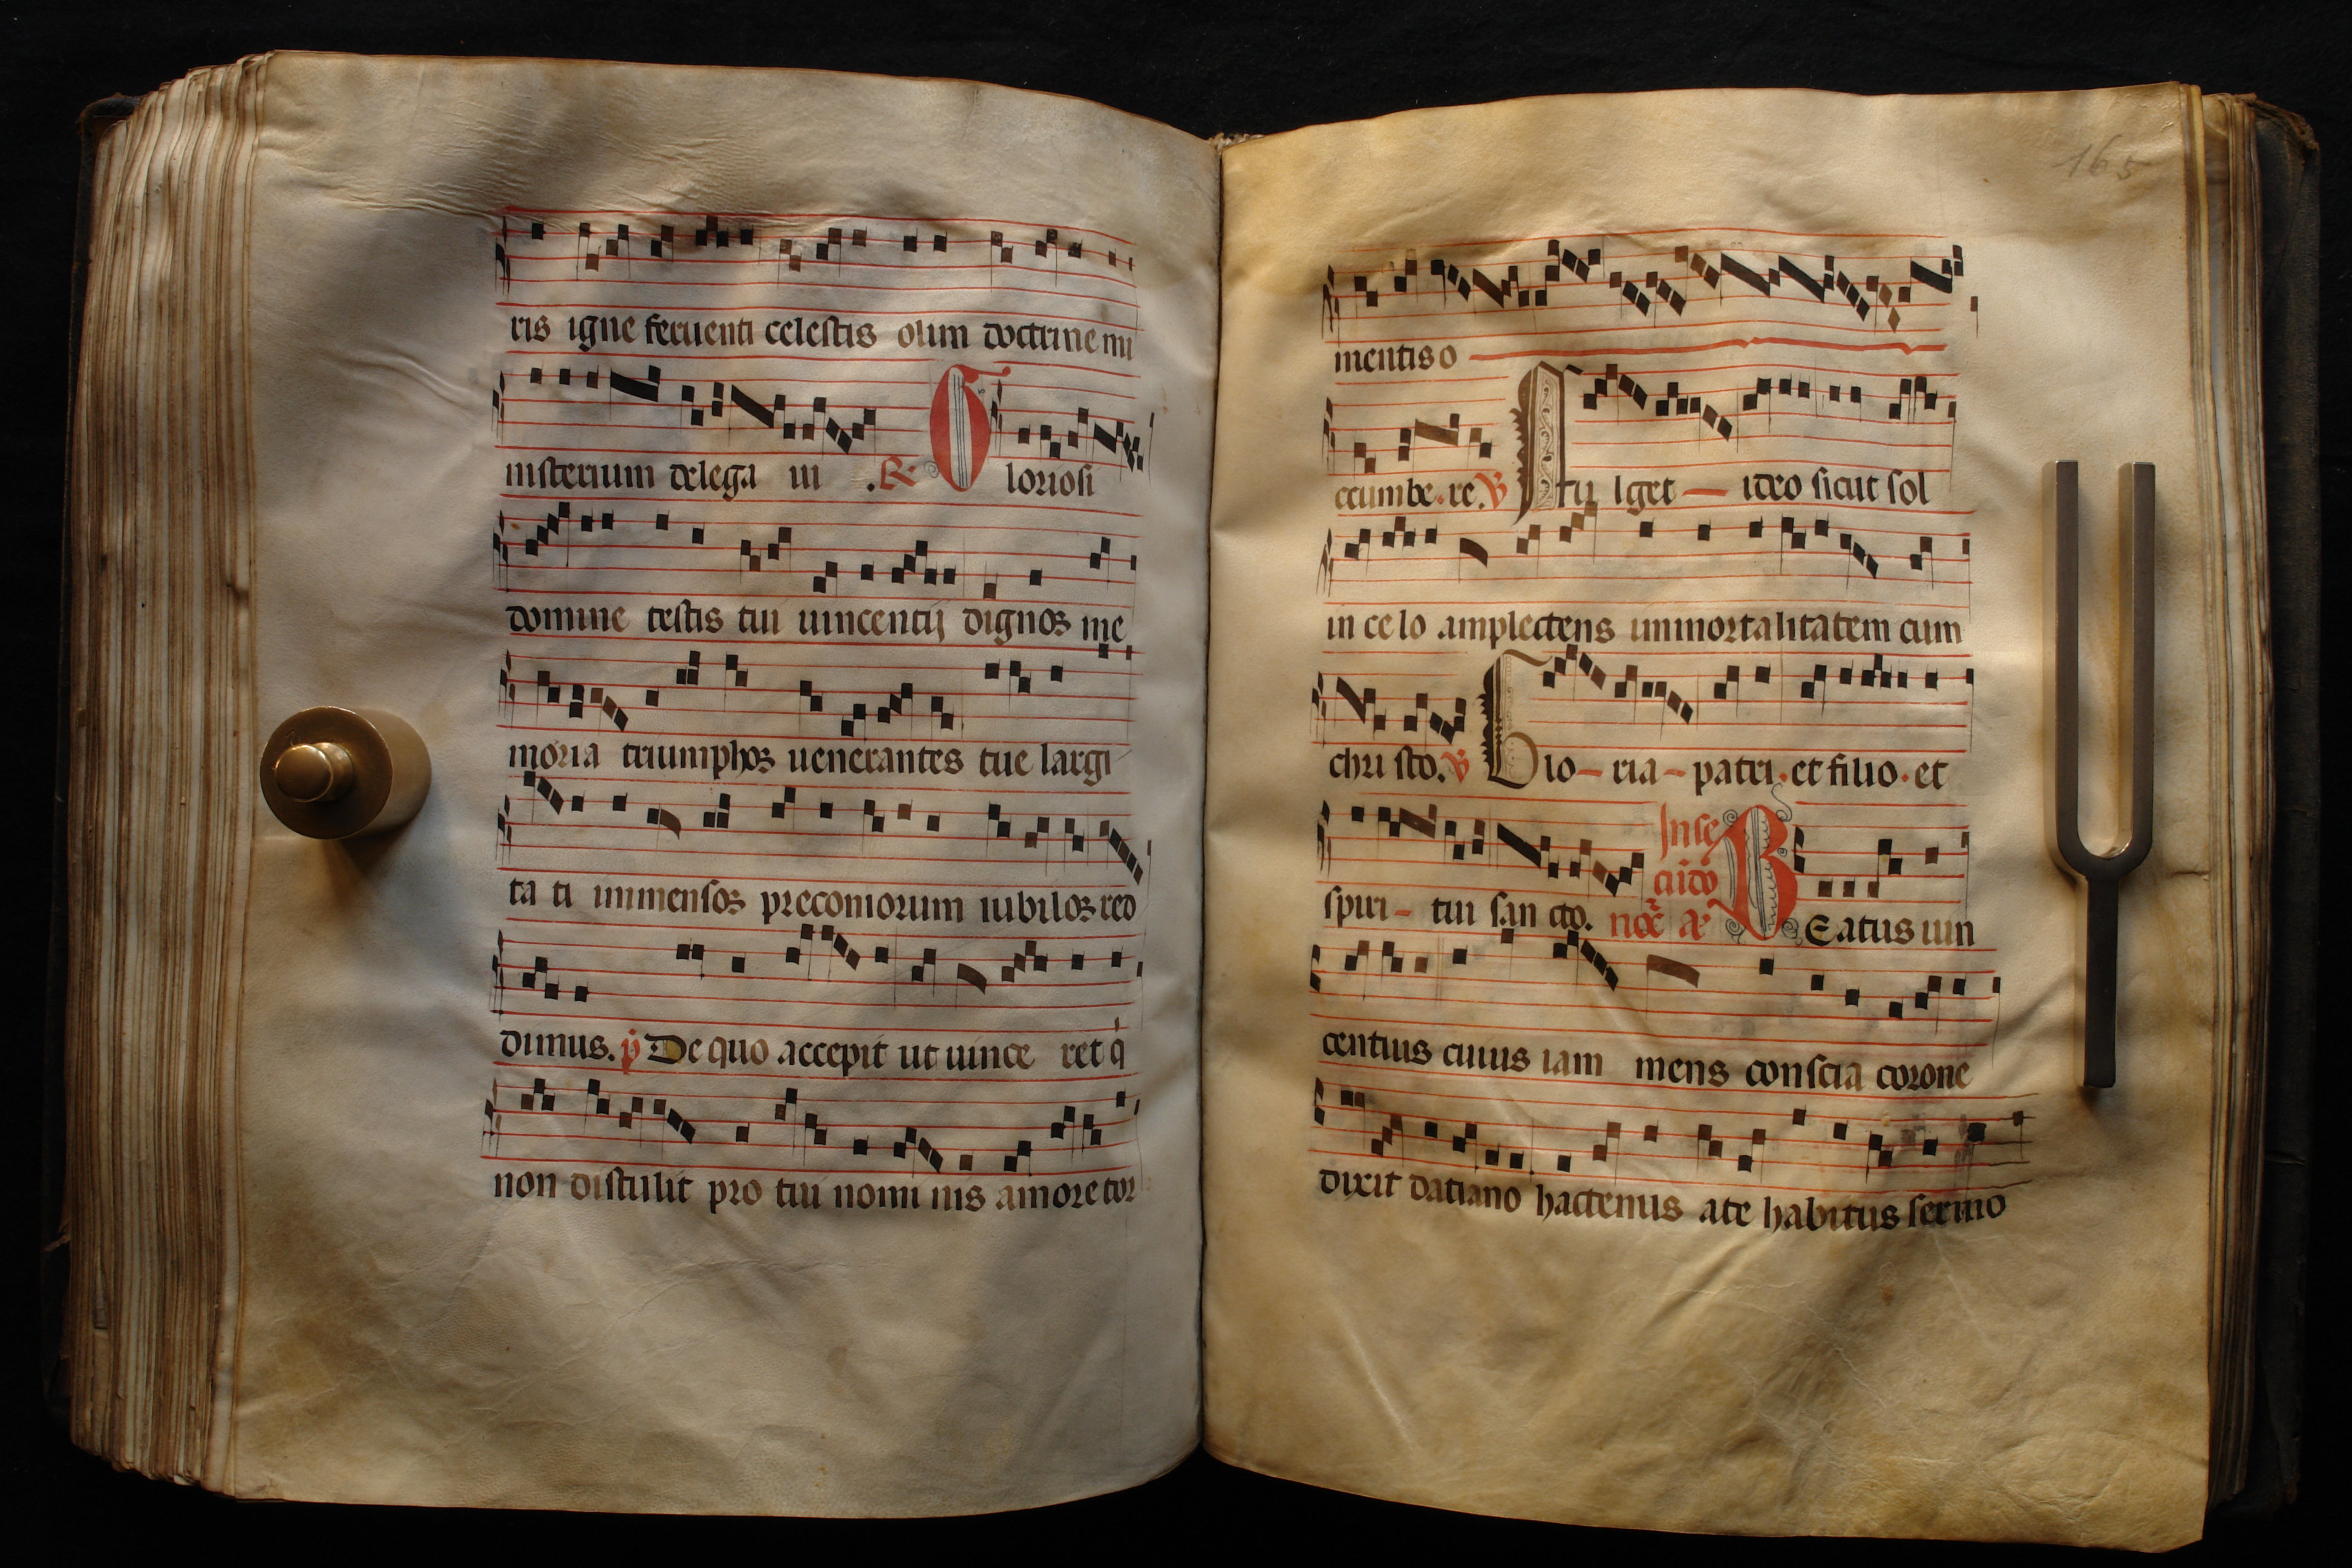 ris igne feruenti celestis olim doctrine mi
nisterium delega ui .R. Gloriosi
domine testis tui uincencij dignos me
moria triumphos uenerantes tue largi
ta ti immensos preconiorum iubilos red
dimus. p De quo accepit ut uince ret q̇
non distulit pro tui nomi nis amore tor
165
mentis o
ccumbe.re. V Fu lget ideo sicut sol
in ce lo amplectens immortalitatem cum
chri sto. V Glo-ria-patri.et filio.et
In se
cu̅do
spiri-tui san cto. noc̅ a̅ BEatus uin
centius cuius iam mens conscia corone
dixit datiano hactenus a te habitus sermo